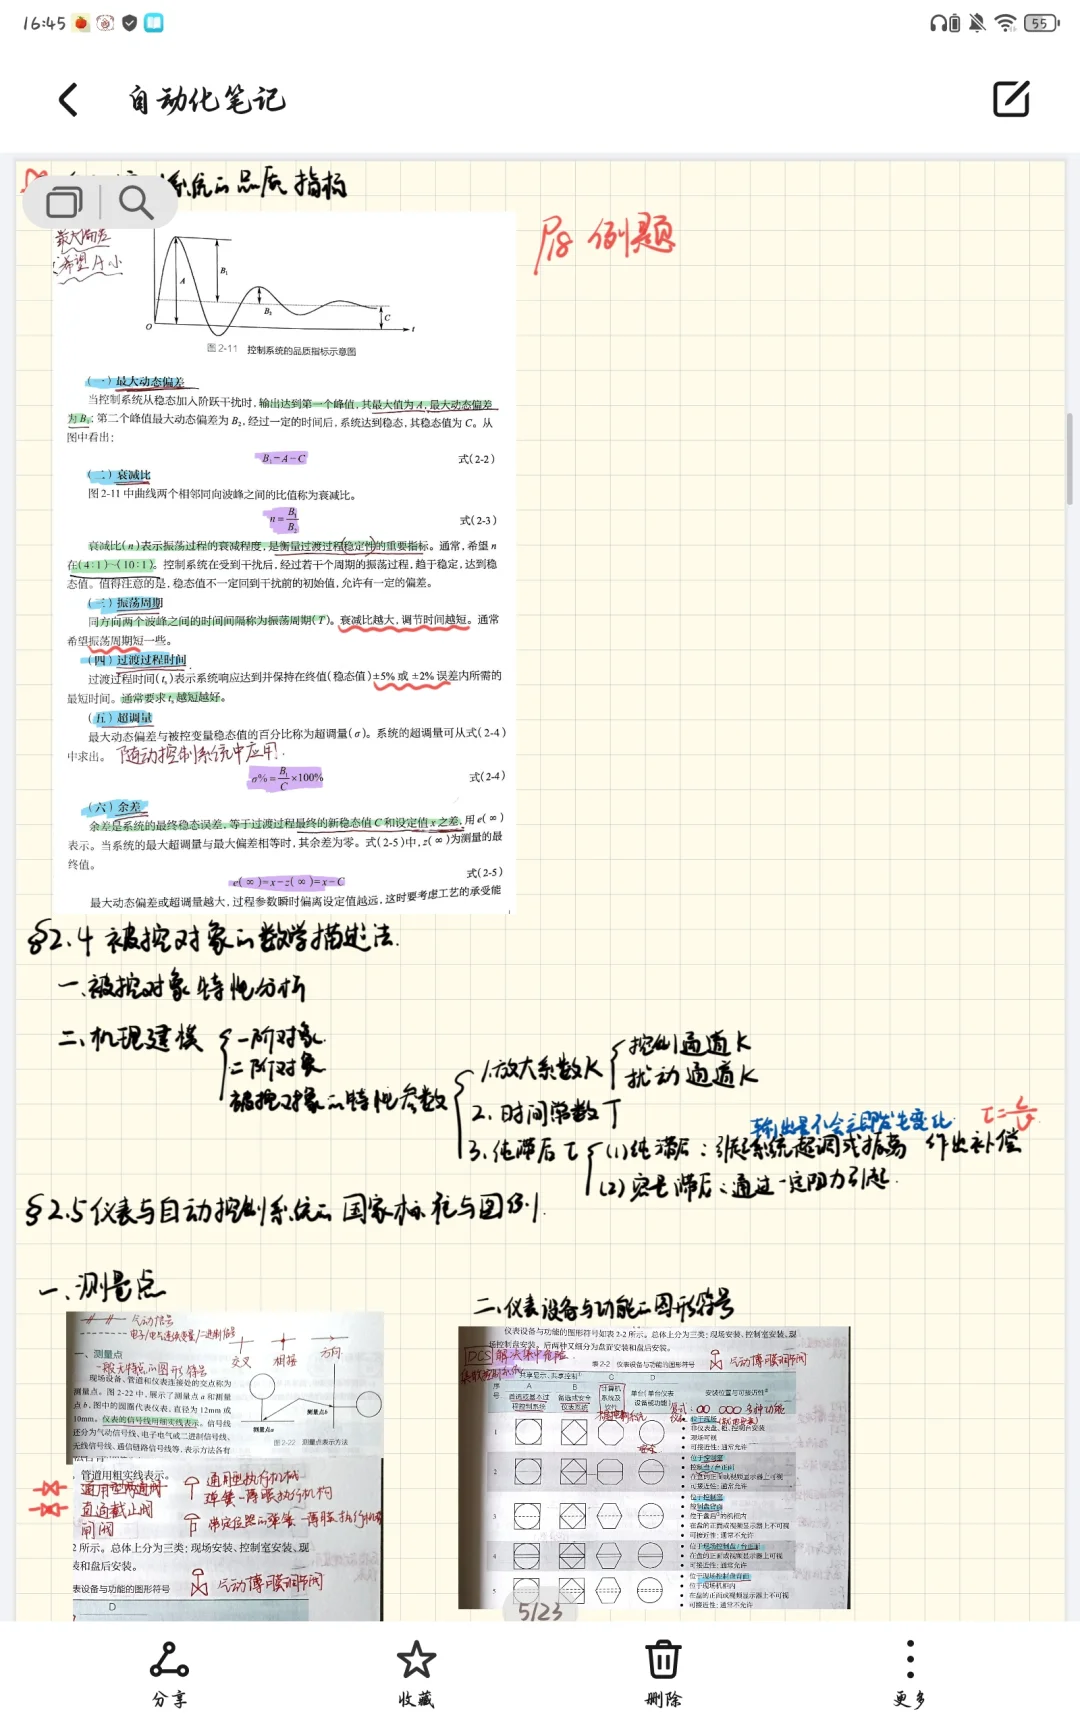 16:45
55
自动化笔记
系统的品质指标
P18 例题
最大偏差
希望A小
A
B₁
B₂
C
O
t
图 2-11 控制系统的品质指标示意图
(一)最大动态偏差
当控制系统从稳态加入阶跃干扰时,输出达到第一个峰值,其最大值为 A,最大动态偏差
为 B₁;第二个峰值最大动态偏差为 B₂,经过一定的时间后,系统达到稳态,其稳态值为 C。从
图中看出:
B₁=A-C 式(2-2)
(二)衰减比
图 2-11 中曲线两个相邻同向波峰之间的比值称为衰减比。
n=B₁/B₂ 式(2-3)
衰减比(n)表示振荡过程的衰减程度,是衡量过渡过程(稳定性)的重要指标。通常,希望 n
在(4:1)~(10:1)。控制系统在受到干扰后,经过若干个周期的振荡过程,趋于稳定,达到稳
态值。值得注意的是,稳态值不一定回到干扰前的初始值,允许有一定的偏差。
(三)振荡周期
同方向两个波峰之间的时间间隔称为振荡周期(T)。衰减比越大,调节时间越短。通常
希望振荡周期短一些。
(四)过渡过程时间
过渡过程时间(tₛ)表示系统响应达到并保持在终值(稳态值)±5% 或 ±2% 误差内所需的
最短时间。通常要求 tₛ 越短越好。
(五)超调量
最大动态偏差与被控变量稳态值的百分比称为超调量(σ)。系统的超调量可从式(2-4)
中求出。 随动控制系统中应用.
σ%=B₁/C×100% 式(2-4)
(六)余差
余差是系统的最终稳态误差,等于过渡过程最终的新稳态值 C 和设定值 x 之差,用 e(∞)
表示。当系统的最大超调量与最大偏差相等时,其余差为零。式(2-5)中,z(∞)为测量的最
终值。
e(∞)=x-z(∞)=x-C 式(2-5)
最大动态偏差或超调量越大,过程参数瞬时偏离设定值越远,这时要考虑工艺的承受能
§2.4 被控对象的数学描述法.
一.被控对象特性分析
二、机理建模
一阶对象.
二阶对象
被控对象的特性参数
1.放大系数K
控制通道K
扰动通道K
2.时间常数T
输出量不会立即发生变化
τ=L/v
3.纯滞后τ
(1)纯滞后:引起系统超调或振荡 作出补偿
(2)容量滞后:通过一定阻力引起.
§2.5 仪表与自动控制系统的国家标准与图例.
一、测量点
二.仪表设备与功能的图形符号
气动信号
电子/电气连续变量/二进制信号
交叉
相接
方向
一、测量点
一般无特定的图形符号
现场设备、管道和仪表连接处的交点称为
测量点。图 2-22 中,展示了测量点 a 和测量
点 b,图中的圆圈代表仪表,直径为 12mm 或
10mm。仪表的信号线用细实线表示。信号线
还分为气动信号线、电子电气或二进制信号线、
无线信号线、通信链路信号线等,表示方法各有
测量点a
测量点b
图 2-22 测量点表示方法
管道用粗实线表示。
通用型两通阀
直通截止阀
闸阀
通用型执行机构
弹簧-薄膜执行机构
带定位器的弹簧-薄膜执行机构
2 所示。总体上分为三类:现场安装、控制室安装、现
装和盘后安装。
表设备与功能的图形符号
气动薄膜调节阀
D
仪表设备与功能的图形符号如表 2-2 所示。总体上分为三类:现场安装、控制室安装、现
场控制盘安装。后两种又细分为盘面安装和盘后安装。
DCS
表 2-2 仪表设备与功能的图形符号
气动薄膜调节阀
共享显示、共享控制
序号
A
B
C
D
首选或基本过程控制系统
备选或安全仪表系统
计算机系统及软件
单台(单台仪表设备或功能)
安装位置与可接近性
多种功能
1
位于现场
非仪表盘、柜、控制台安装
现场可视
可接近性:通常允许
2
位于控制室
控制盘/台正面
在盘的正面或视频显示器上可视
可接近性:通常允许
3
位于控制室
控制盘背面
位于盘后的机柜内
在盘的正面或视频显示器上不可视
可接近性:通常不允许
4
位于现场控制盘/台正面
在盘的正面或视频显示器上可视
可接近性:通常允许
5
位于现场控制盘背面
位于现场机柜内
在盘的正面或视频显示器上不可视
可接近性:通常不允许
5/23
分享
收藏
删除
更多